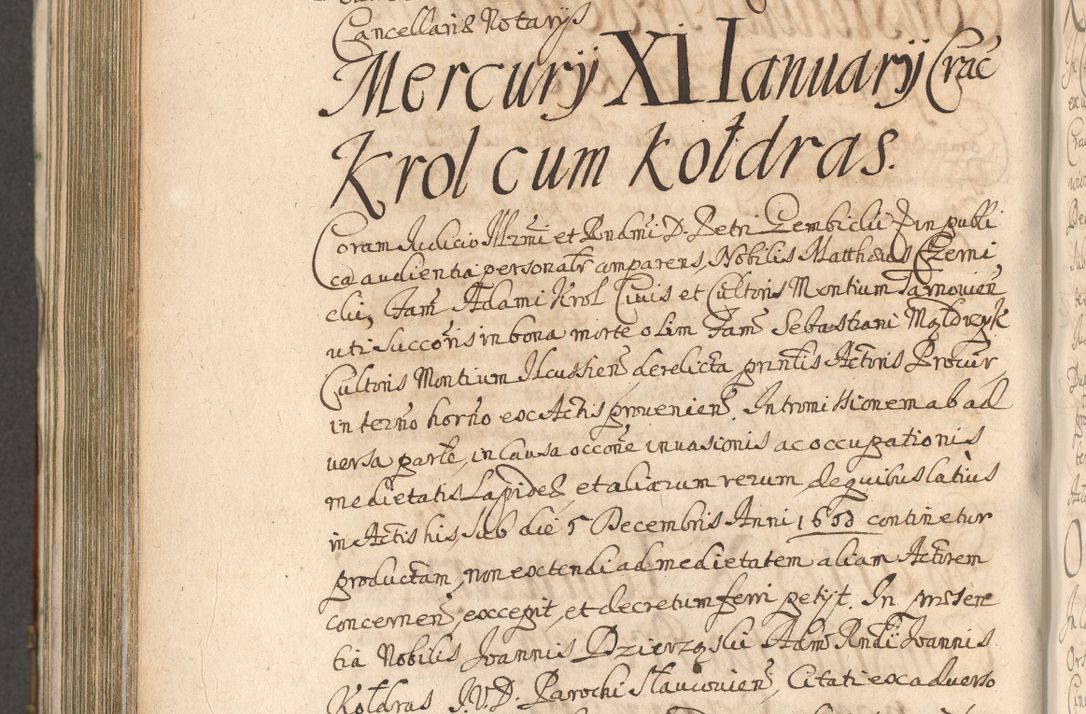 Cancellariæ Notarijs
Mercurij XI Ianuarij Crac̃
Krol cum Kołdras.
Coram Iudicio Illr̃mi et Rndmi D. Petri Gembicki in publi
ca audientia personalr̃ comparens, Nobilis Matthæus Czerni
cki, Fam̃ Adami Krol Civis et Cultoris Montium Tarnovien̄
uti succoris in bona morte olim Fam̃ Sebastiani Mądrzyk
Cultoris Montium Ilcussien̄ derelicta prñtis Actoris Procur̃
in terño horño ex Actis provenien̄. Intromissionem ab ad
versa parte, in causa occoñe invasionis ac occupationis
medietatis Lapideæ et aliarum rerum, de quibus latius
in Actis his, sub die 5 Decembris Anni 1650 continetur
productam, non extendi ad medietatem aliam Actorem
concernen̄, excepit, et decretum ferri petijt. In præsen
tia Nobilis Joannis Dzierzgski Adm̃ Rndi Joannis
Kołdras J.V.D. Parochi Slavcovien̄, Citati ex adverso